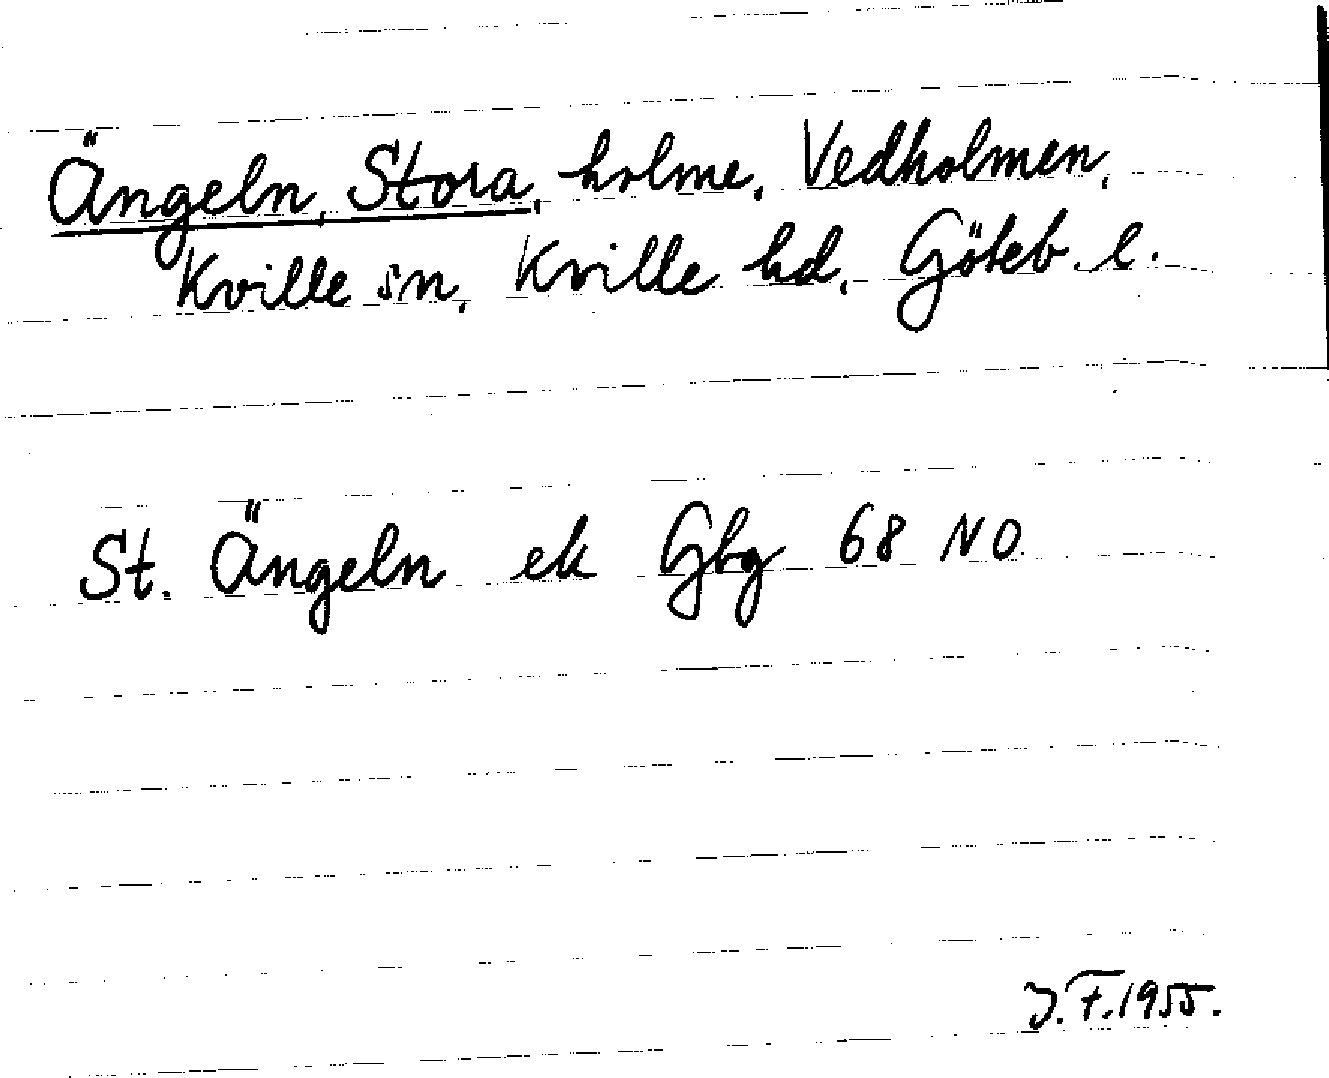 Ängeln, Stora, holme, Vedholmen,
Kville sn, Kville hd, Göteb. l.
St. Ängeln ek Gbg 68 NO
J.F. 1955.